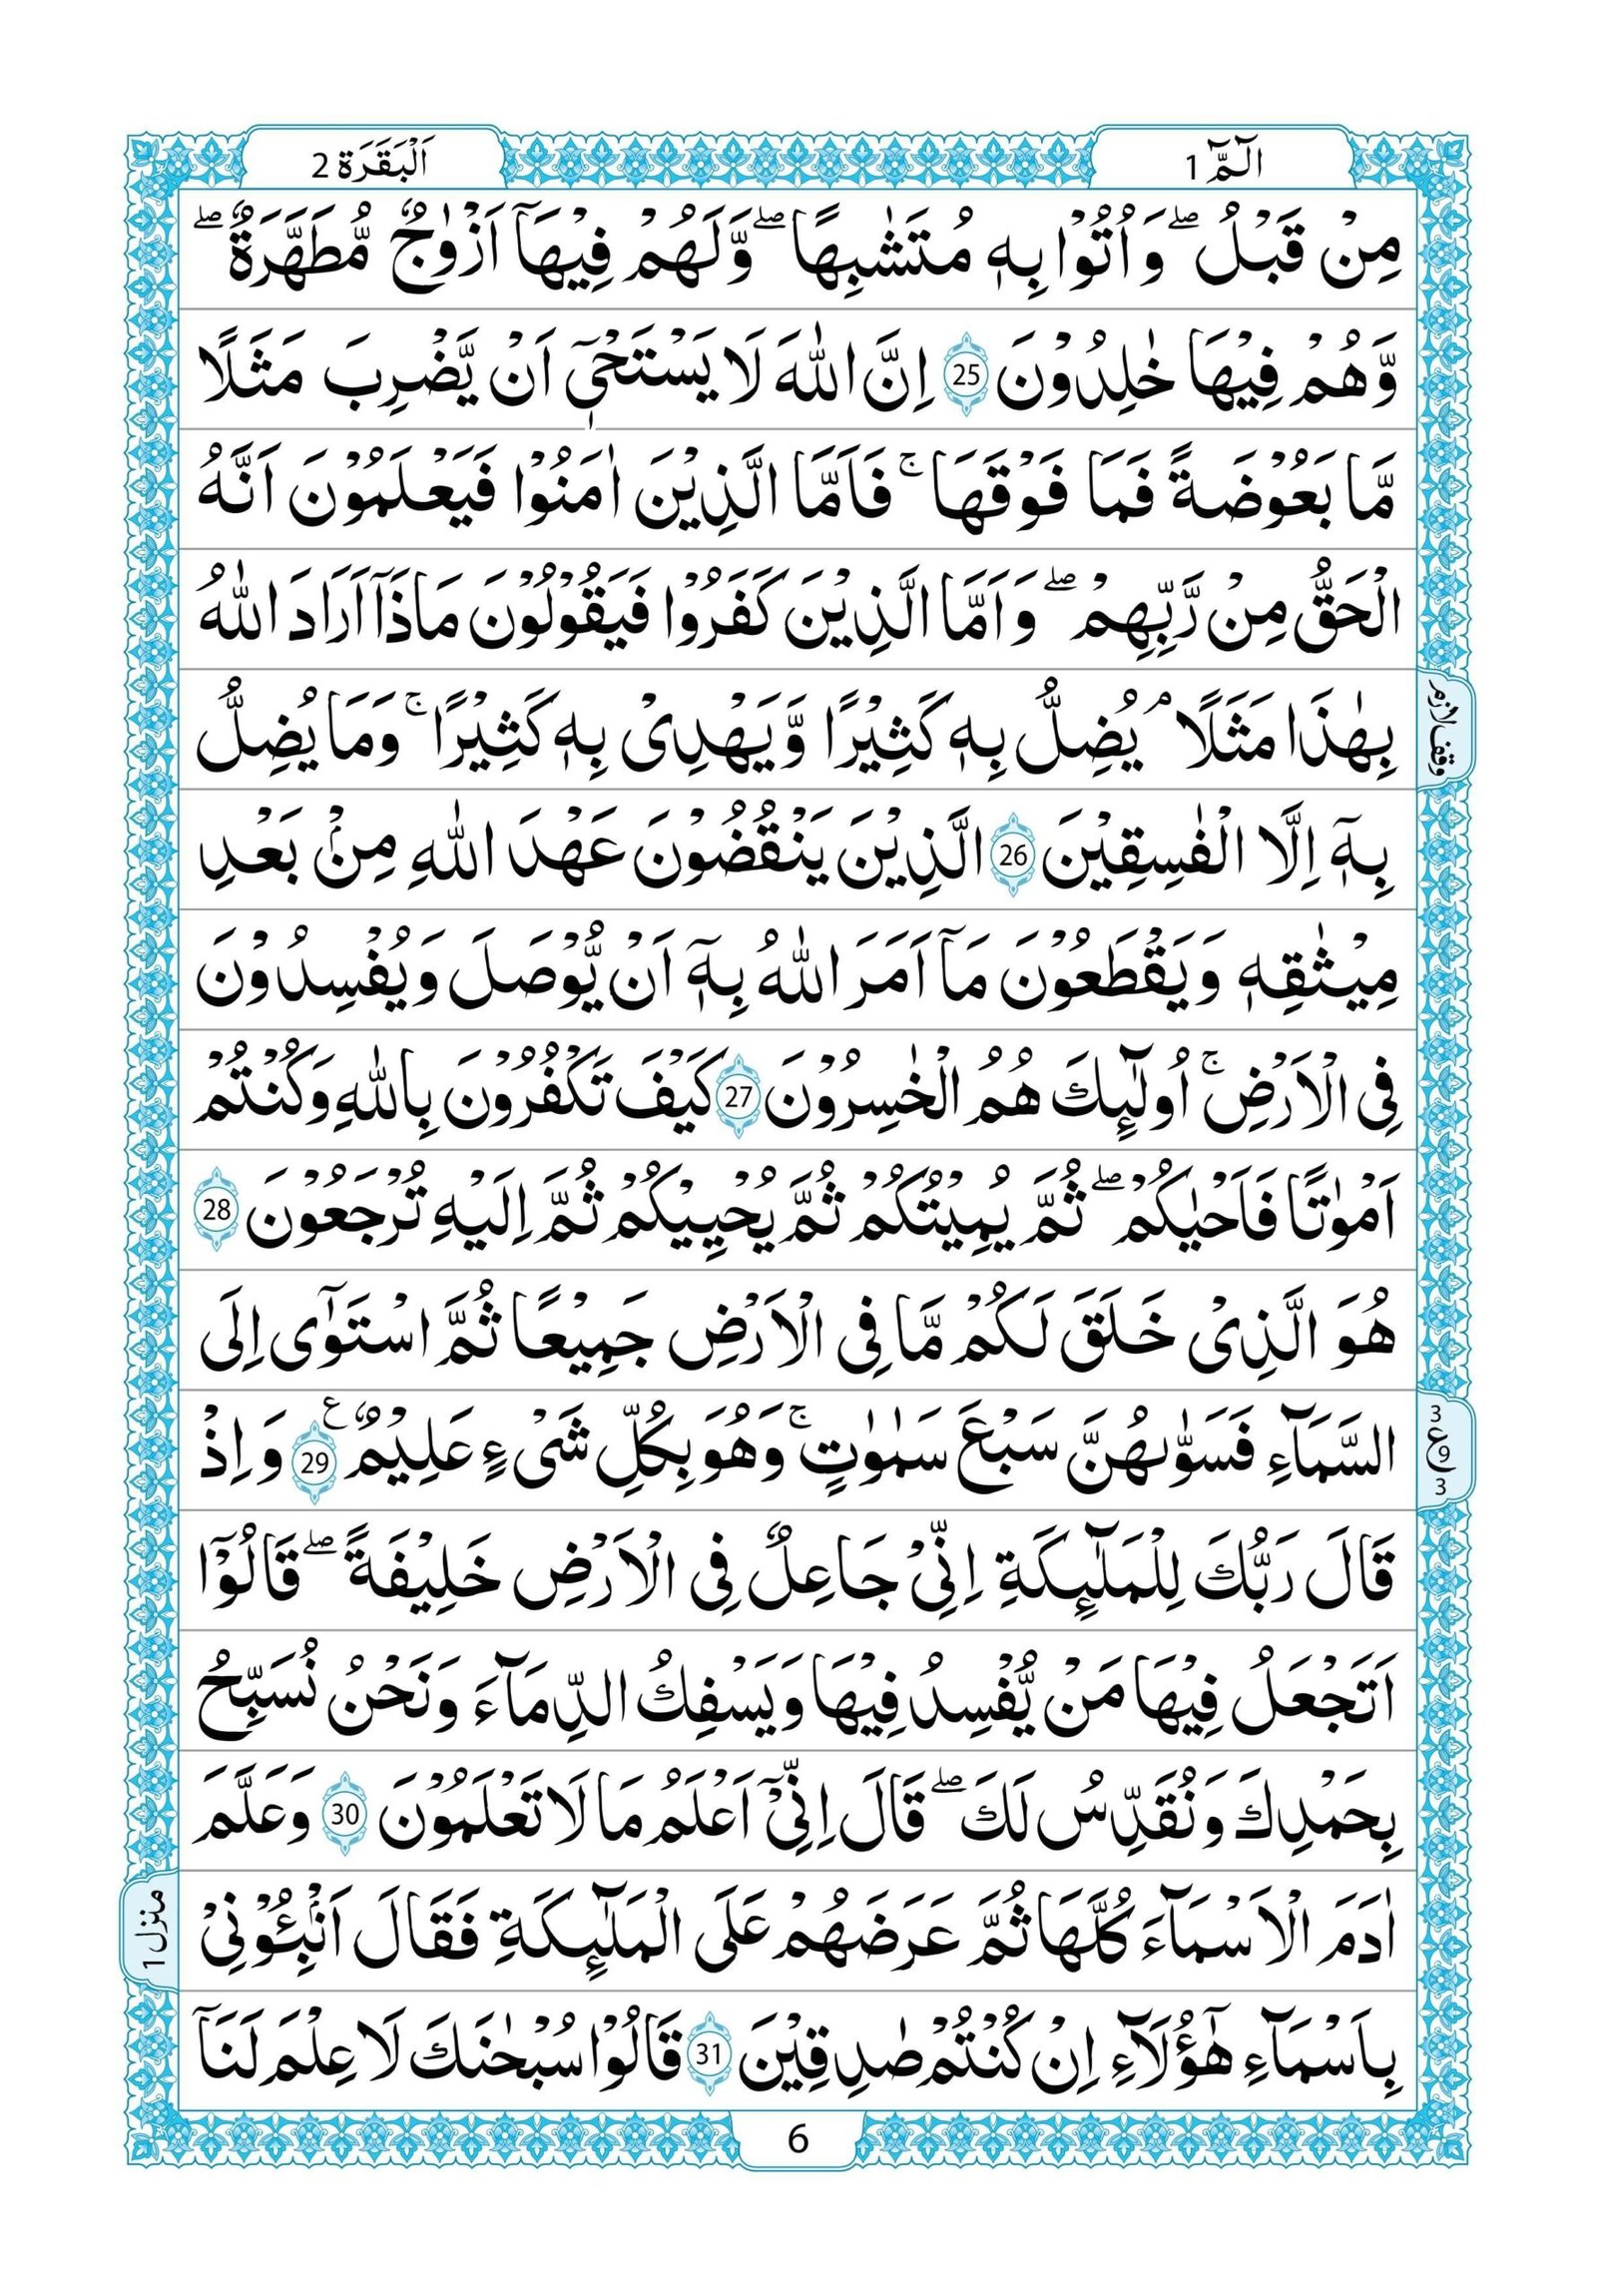 الٓمّٓ 1
اَلْبَقَرَة 2
مِنْ قَبْلُ ۖ وَاُتُوْا بِهٖ مُتَشٰبِهًا ۖ وَّلَهُمْ فِيْهَآ اَزْوٰجٌ مُّطَهَّرَةٌ ۖ
وَّهُمْ فِيْهَا خٰلِدُوْنَ 25 اِنَّ اللّٰهَ لَا يَسْتَحْيٖٓ اَنْ يَّضْرِبَ مَثَلًا
مَّا بَعُوْضَةً فَمَا فَوْقَهَا ۚ فَاَمَّا الَّذِيْنَ اٰمَنُوْا فَيَعْلَمُوْنَ اَنَّهُ
الْحَقُّ مِنْ رَّبِّهِمْ ۖ وَاَمَّا الَّذِيْنَ كَفَرُوْا فَيَقُوْلُوْنَ مَاذَآ اَرَادَ اللّٰهُ
بِهٰذَا مَثَلًا ۘ يُضِلُّ بِهٖ كَثِيْرًا وَّيَهْدِىْ بِهٖ كَثِيْرًا ۚ وَمَا يُضِلُّ
وقف لازم
بِهٖٓ اِلَّا الْفٰسِقِيْنَ 26 الَّذِيْنَ يَنْقُضُوْنَ عَهْدَ اللّٰهِ مِنْۢ بَعْدِ
مِيْثٰقِهٖ وَيَقْطَعُوْنَ مَآ اَمَرَ اللّٰهُ بِهٖٓ اَنْ يُّوْصَلَ وَيُفْسِدُوْنَ
فِى الْاَرْضِ ۚ اُولٰٓئِكَ هُمُ الْخٰسِرُوْنَ 27 كَيْفَ تَكْفُرُوْنَ بِاللّٰهِ وَكُنْتُمْ
اَمْوٰتًا فَاَحْيٰكُمْ ۖ ثُمَّ يُمِيْتُكُمْ ثُمَّ يُحْيِيْكُمْ ثُمَّ اِلَيْهِ تُرْجَعُوْنَ 28
هُوَ الَّذِىْ خَلَقَ لَكُمْ مَّا فِى الْاَرْضِ جَمِيْعًا ثُمَّ اسْتَوٰٓى اِلَى
السَّمَآءِ فَسَوّٰىهُنَّ سَبْعَ سَمٰوٰتٍ ۚ وَهُوَ بِكُلِّ شَىْءٍ عَلِيْمٌ ع 29 وَاِذْ
3 ع 9 3
قَالَ رَبُّكَ لِلْمَلٰٓئِكَةِ اِنِّىْ جَاعِلٌ فِى الْاَرْضِ خَلِيْفَةً ۖ قَالُوْٓا
اَتَجْعَلُ فِيْهَا مَنْ يُّفْسِدُ فِيْهَا وَيَسْفِكُ الدِّمَآءَ وَنَحْنُ نُسَبِّحُ
بِحَمْدِكَ وَنُقَدِّسُ لَكَ ۖ قَالَ اِنِّىْٓ اَعْلَمُ مَا لَا تَعْلَمُوْنَ 30 وَعَلَّمَ
اٰدَمَ الْاَسْمَآءَ كُلَّهَا ثُمَّ عَرَضَهُمْ عَلَى الْمَلٰٓئِكَةِ فَقَالَ اَنْۢبِـُٔوْنِىْ
منزل 1
بِاَسْمَآءِ هٰٓؤُلَآءِ اِنْ كُنْتُمْ صٰدِقِيْنَ 31 قَالُوْا سُبْحٰنَكَ لَا عِلْمَ لَنَآ
6